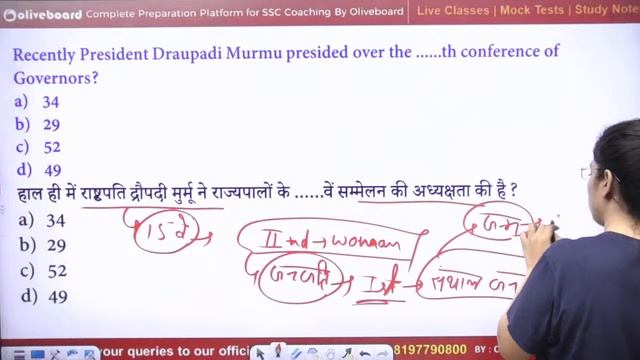 oliveboard Complete Preparation Platform for SSC Coaching By Oliveboard Live Classes | Mock Tests | Study Note
Recently President Draupadi Murmu presided over the ......th conference of
Governors?
a) 34
b) 29
c) 52
d) 49
हाल ही में राष्ट्रपति द्रौपदी मुर्मू ने राज्यपालों के ......वें सम्मेलन की अध्यक्षता की है ?
a) 34
b) 29
c) 52
d) 49
15वे
II nd → Woman
जनजाति → Ist →
your queries to our offici 8197790800 BY : C